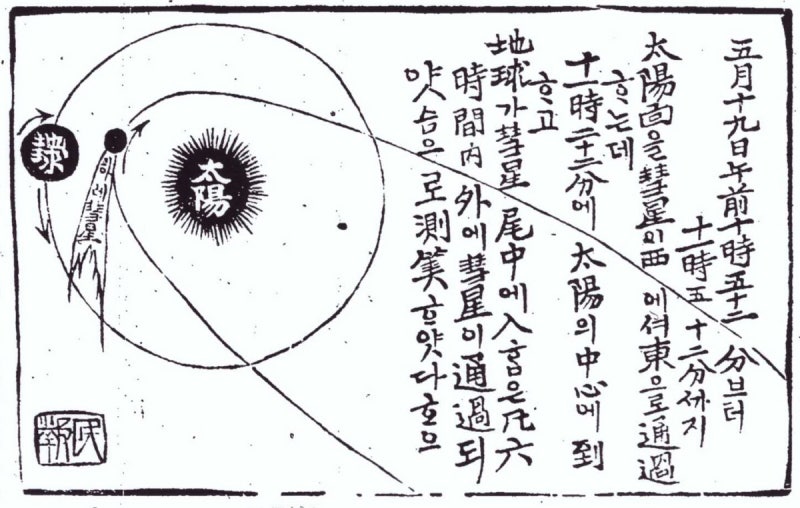 五月十九日午前十時五十二分브터
十一時五十二分ᄭᆞ지
太陽面을彗星이西에셔東으로通過
ᄒᆞ는데
十一時二十二分에太陽의中心에到
ᄒᆞ고
地球가彗星尾中에入홈은凡六
時間內外에彗星이通過되
얏슴으로測筭ᄒᆞ얏다ᄒᆞ으
太陽
하레彗星